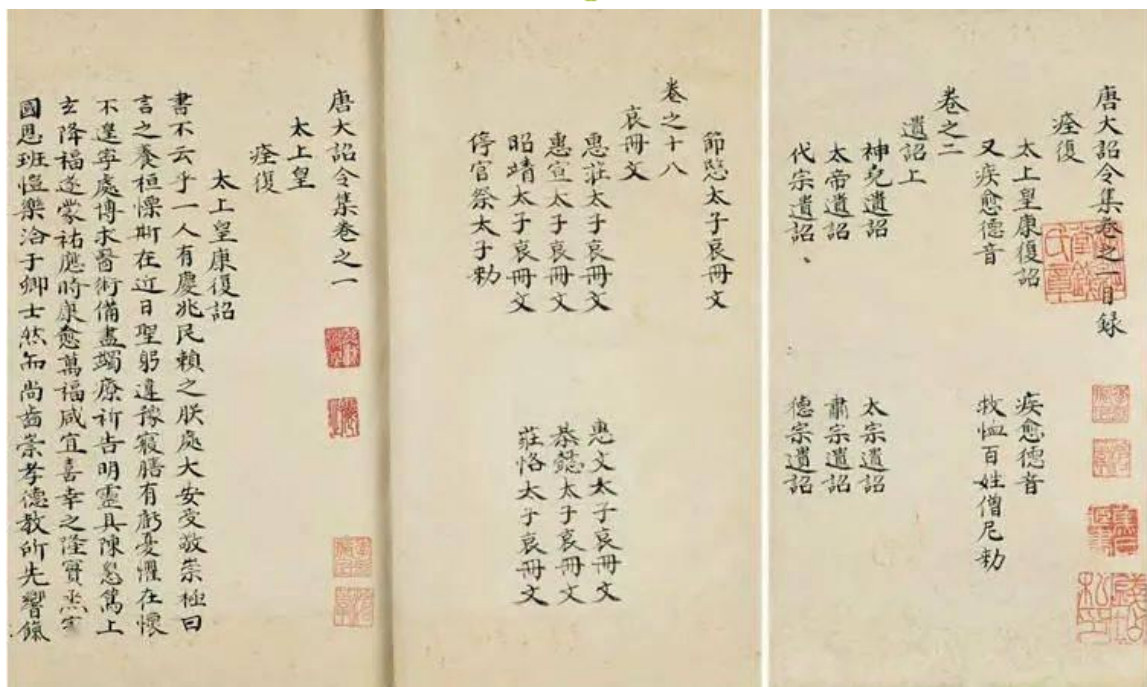 唐大詔令集卷之一目録
痊復
太上皇康復詔 疾愈德音
又疾愈德音 救恤百姓僧尼勑
卷之二
遺詔上
神堯遺詔 太宗遺詔
太帝遺詔 肅宗遺詔
代宗遺詔 德宗遺詔
節愍太子哀冊文
卷之十八
哀冊文
惠莊太子哀冊文 惠文太子哀冊文
惠宣太子哀冊文 恭懿太子哀冊文
昭靖太子哀冊文 莊恪太子哀冊文
停官祭太子勑
唐大詔令集卷之一
太上皇
痊復
太上皇康復詔
書不云乎一人有慶兆民賴之朕處大安愛敬崇極曰
言之養桓慄斯在近日聖躬違豫寢膳有虧憂懼在懷
不遑寧處博求醫術備盡蠲療祈告明靈具陳懇篤上
玄降福遂蒙祐應時康愈萬福咸宜喜幸之隆實
國恩班愷樂洽于卿士然而尚齒崇孝德教所先饗餼